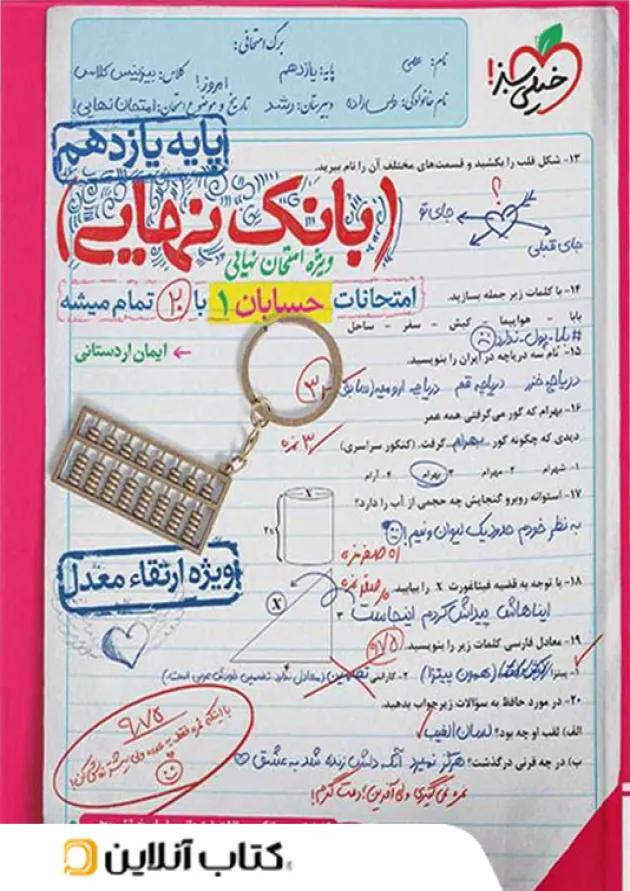 خیلی سبز!
برگ امتحانی:
نام: علی
پایه: یازدهم
کلاس: بیزنیس کلاس
امروز!
دبیرستان: رشد
تاریخ و موضوع امتحان: امتحان نهایی!
پایه یازدهم
۱۳- شکل قلب را بکشید و قسمت‌های مختلف آن را نام ببرید.
؟
جای تو
جای قبلی
(بانک نهایی)
ویژه امتحان نهایی
امتحانات حسابان ۱ با ۲۰ تمام میشه
ایمان اردستانی
۱۴- با کلمات زیر جمله بسازید.
بابا - هواپیما - کیش - سفر - ساحل
#بابا-پول-ندارد
۱۵- نام سه دریاچه در ایران را بنویسید.
دریاچه خزر دریاچه قم دریاچه ارومیه (سابق)
۳
۱۶- بهرام که گور می‌گرفتی همه عمر
دیدی که چگونه گور بهرام گرفت. (کنکور سراسری)
۳ نمره
۱- شهرام ۲- مهرام ۳- بهرام ۴- آرام
۱۷- استوانه روبرو گنجایش چه حجمی از آب را دارد؟
X
۲x
به نظر خودم حدود یک لیوان و نیم!
اه صفر نمره
ویژه ارتقاء معدل
۱۸- با توجه به قضیه فیثاغورث X را بیابید.
صفر نمره
X
ایناهاش پیداش کردم اینجاست
۳
۴
۱۹- معادل فارسی کلمات زیر را بنویسید.
۹/۷۵
۱- پیتزا (همون پیتزا) ۲- گارانتی تضمین
۲۰- در مورد حافظ به سؤالات زیر جواب بدهید.
الف) لقب او چه بود؟ لسان الغیب
ب) در چه قرنی درگذشت؟ هرگز نمیرد آنکه دلش زنده شد به عشق
۹/۷۵
نمره نمی‌گیری ولی آفرین! دمت گرم!
کتاب آنلاین